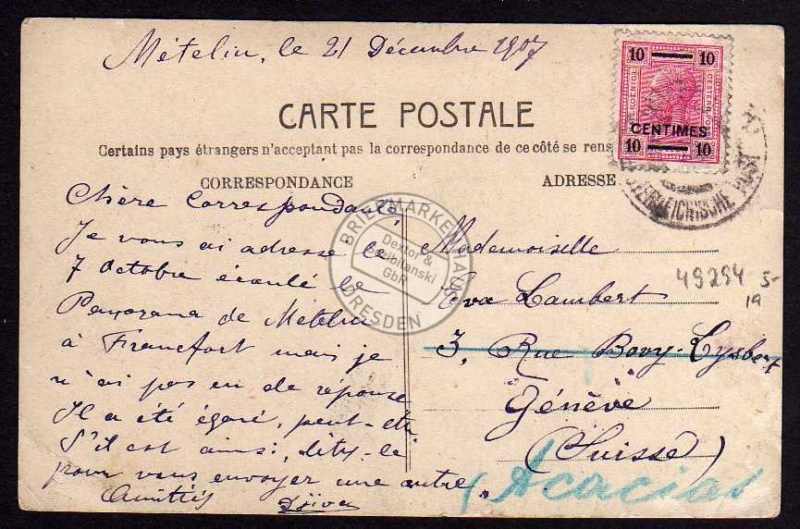 Mételin, le 21 Décembre 1907
10 10
CENTIMES
10 10
CARTE POSTALE
Certains pays étrangers n'acceptent pas la correspondance de ce côté se rens
CORRESPONDANCE
ADRESSE
ÖSTERREICHISCHE POST
Chère Correspondante
Je vous ai adressé le
7 Octobre écoulé le
Panorama de Metelin
à Francfort mais je
n'ai pas eu de réponse
Il a été égaré, peut-etr
S'il est ainsi, dites-le
pour vous envoyer une autre.
Amitiés
Mademoiselle
Eva Lambert
3, Rue Bovy-Lysberg
Génève
(Suisse)
(Acacias
49294 5-
19
BRIEFMARKENHAUS
Dextor &
Bibilanski
GbR
DRESDEN